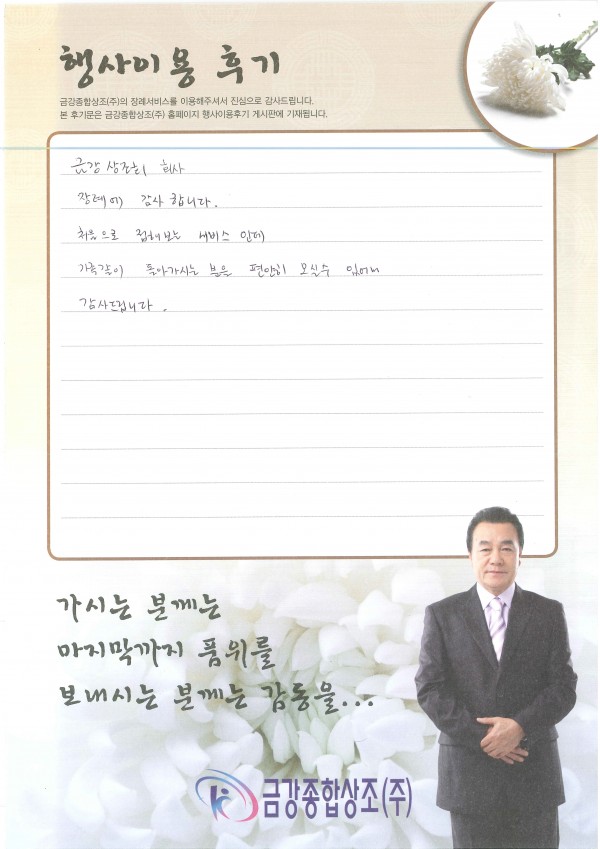 행사이용 후기
금강종합상조(주)의 장례서비스를 이용해주셔서 진심으로 감사드립니다.
본 후기문은 금강종합상조(주) 홈페이지 행사이용후기 게시판에 기재됩니다.
금강 상조회 회사
장례에 감사 합니다.
처음으로 접해보는 서비스 안에
가족같이 돌아가시는 분을 편안히 모실수 있어
감사드립니다.
가시는 분께는
마지막까지 품위를
보내시는 분께는 감동을...
금강종합상조(주)